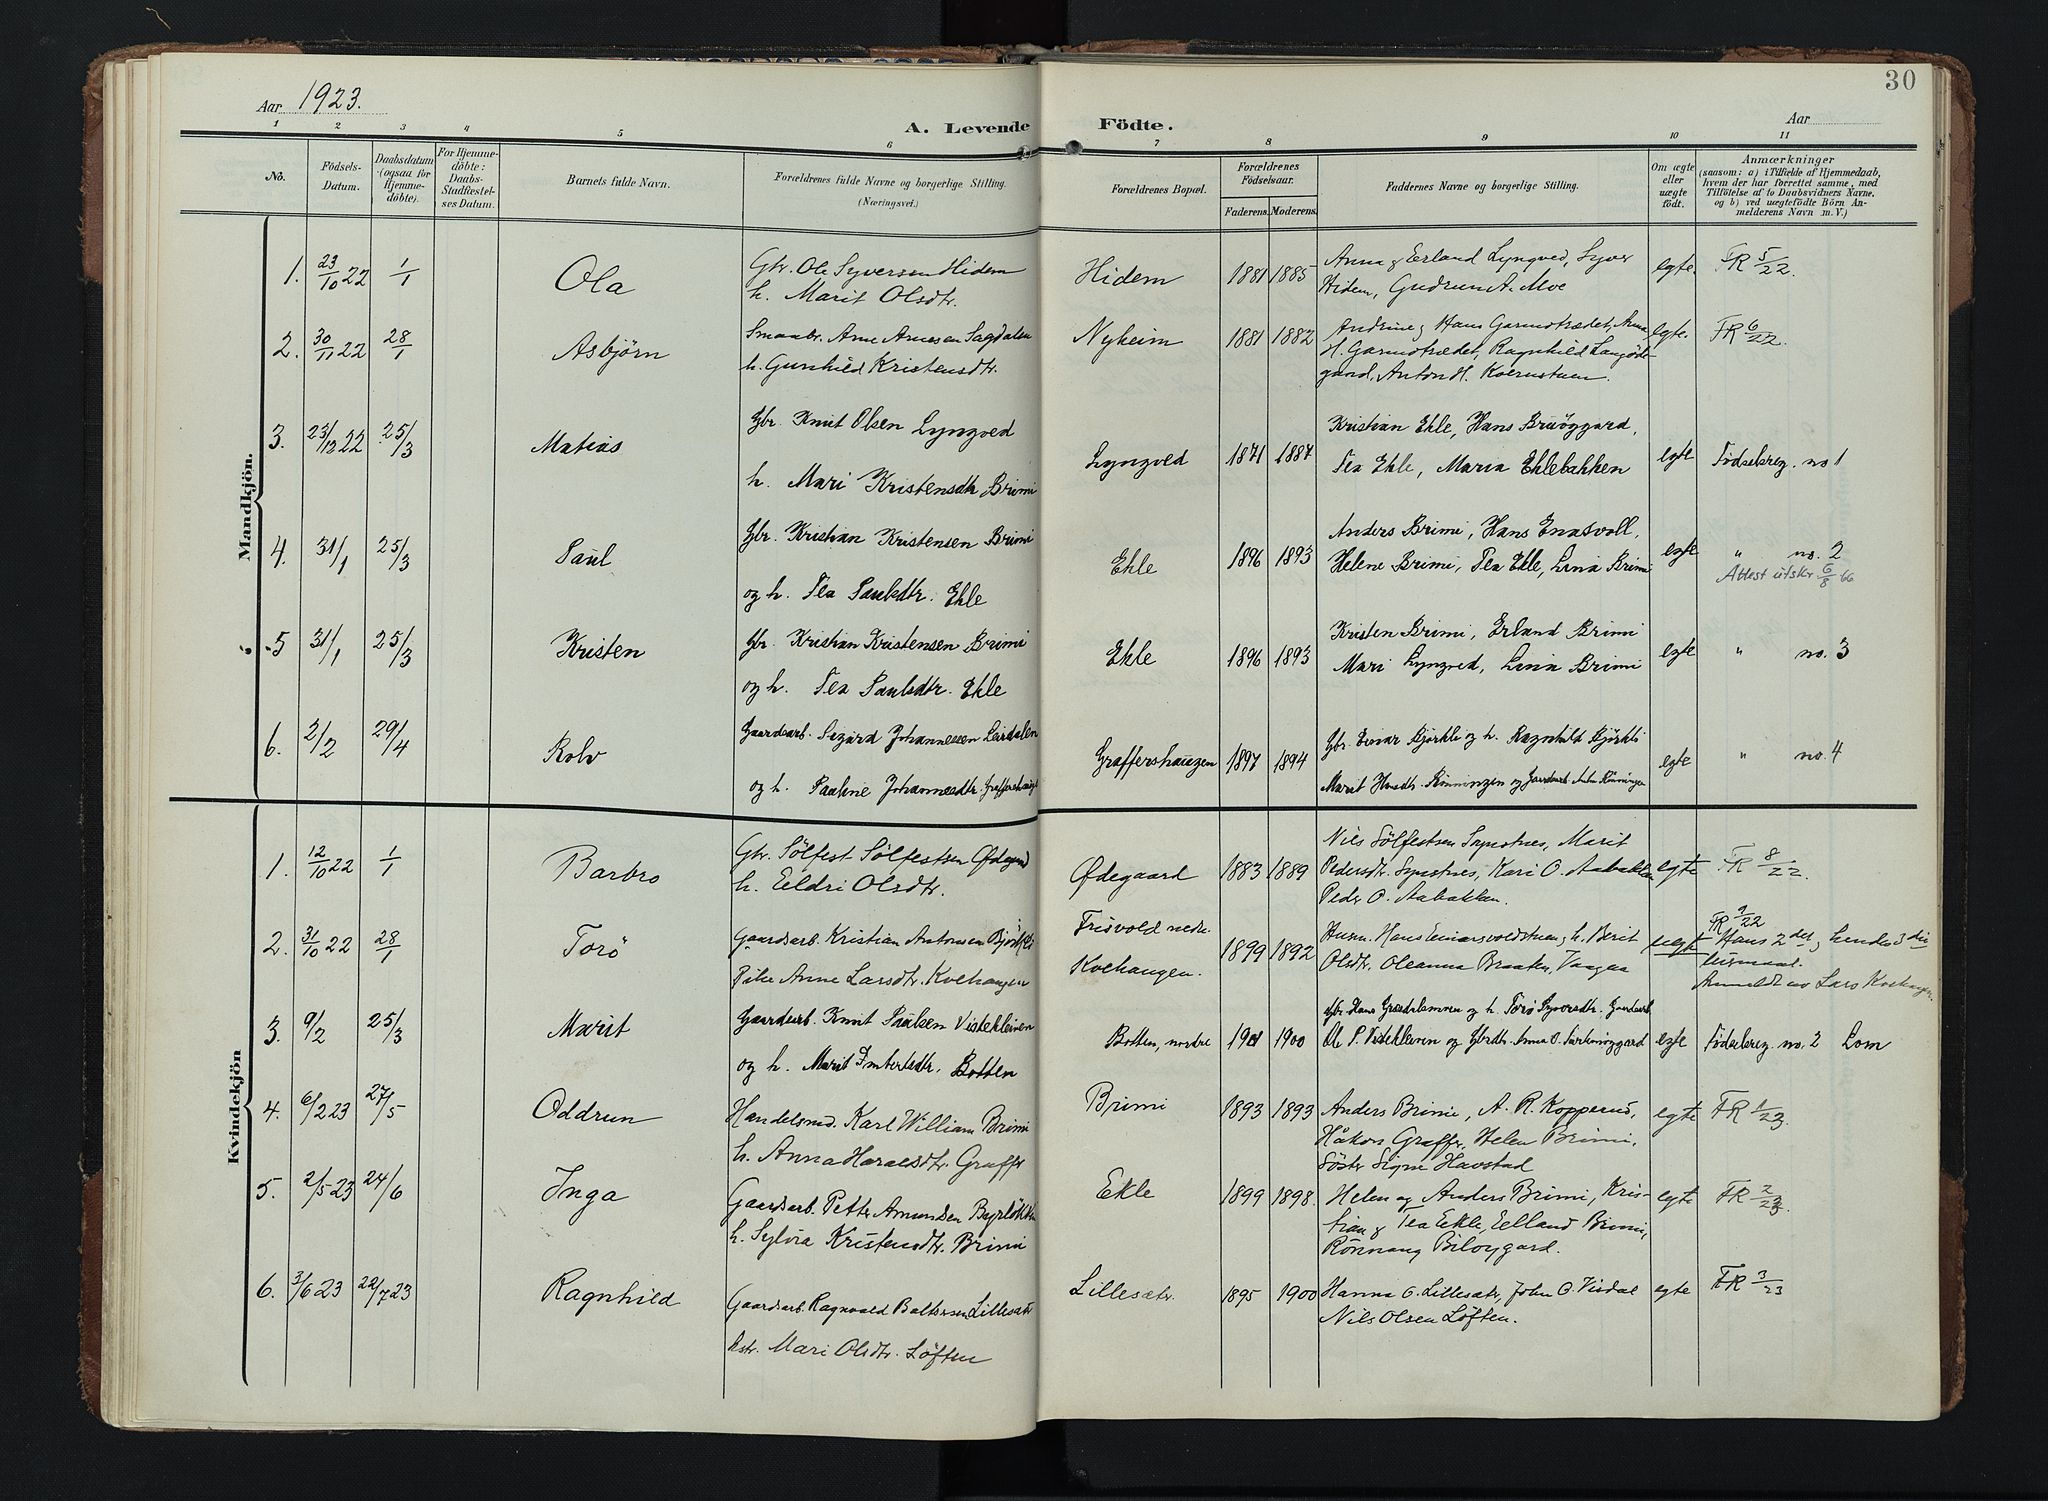 30
Aar 1923.
Aar
1 2 3 4 5 6 7 8 9 10 11
A. Levende Födte.
No.
Födsels-Datum.
Daabsdatum (ogsaa for Hjemme-döbte).
For Hjemme-döbte: Daabs-Stadfæstel-ses Datum.
Barnets fulde Navn.
Forældrenes fulde Navne og borgerlige Stilling.
(Næringsvei.)
Forældrenes Bopæl.
Forældrenes Födselsaar.
Faderens. Moderens.
Faddernes Navne og borgerlige Stilling.
Om ægte eller uægte födt.
Anmærkninger
(saasom: a) i Tilfælde af Hjemmedaab,
hvem der har forrettet samme, med
Tilföielse af to Daabsvidners Navne,
og b) ved uægtefödte Börn An-
melderens Navn m. V.)
Mandkjön.
1. 23/10 22 1/1 Ola
Gbr. Ole Syversen Hidem
h. Marit Olsdtr.
Hidem 1881 1885
Anna & Erland Lyngved, Syver
Hidem, Gudrun A. Moe
egte. FR 5/22.
2. 30/11 22 28/1 Asbjörn
Smaabr. Arne Arnesen Sagdalen
h. Gunhild Kristensdtr.
Nyheim 1881 1882
Andrine & Hans Garmotrædet, Anna
H. Garmotrædet, Ragnhild
gard, Anton H. Kvernstuen.
egte. FR 6/22.
3. 23/12 22 25/3 Matias
Gbr. Knut Olsen Lyngved
h. Mari Kristensdtr Brimi
Lyngved 1871 1887
Kristian Ekle, Hans
Tea Ekle, Maria Eklebakken
egte Fødselsreg. no 1
4. 31/1 25/3 Paul
Gbr. Kristian Kristensen Brimi
og h. Tea Paulsdtr. Ekle
Ekle 1896 1893
Anders Brimi, Hans
Helene Brimi, Tea Ekle, Lina Brimi
egte " no. 2
Attest utskr 6/8 66
5 31/1 25/3 Kristen
Gbr. Kristian Kristensen Brimi
og h. Tea Paulsdtr. Ekle
Ekle 1896 1893
Kristen Brimi, Erland Brimi
Mari Lyngved, Lina Brimi
egte " no. 3
6. 2/2 29/4 Rolv
Gaardsarb. Sigurd Johannessen Leirdalen
og h. Pauline Johannesdtr.
Graffershaugen 1897 1894
Gbr. Einar Bjørkli og h. Ragnhild Bjørkli
Marit Hansdtr. Rønningen og Gaardsarb. Anton Rønningen
egte " no. 4
Kvindekjön
1. 12/10 22 1/1 Barbro
Gbr. Sölfest Sölfestsen Ødegaard
h. Eeldri Olsdtr.
Ødegaard 1883 1889
Nils Sölfestsen Synstnes, Marit
Pedersdtr. Synstnes, Kari O. Aabakken
Peder O. Aabakken.
egte FR 8/22.
2. 31/10 22 28/1 Torö
Gaardsarb. Kristian Antonsen
Pike Anne Larsdtr. Kvehaugen
Frisvold nedr.
Kvehaugen.
1899 1892
Husm. Hans h. Berit
Olsdtr, Oleanna Braaten, Vaagaa
uegte FR 9/22
Hans 2det, hendes 3die
leiermaal.
Anmeldt av Lars Kvehaugen.
3. 9/2 25/3 Marit
Gaardsarb. Knut Paulsen Vistekleiven
og h. Marit Botten
Botten, nordre 1901 1900
Gbr. Hans og h. Torø Syversdtr. Gaardsarb
Ole P. Vistekleiven og Gbrdtr. Anna O.
egte Fødselsreg. no. 2 Lom
4. 6/2 23 27/5 Oddrun
Handelsmd. Karl William Brimi
h. Anna Haralsdtr. Graffr
Brimi 1893 1893
Anders Brimi, A. R. Kopperud,
Håkon Graffr, Helen Brimi,
Söstr Signe Havstad
egte FR 1/23.
5. 2/5 23 24/6 Inga
Gaardsarb. Petter Amundsen
h. Sylvia Kristensdtr. Brimi
Ekle 1899 1898.
Helen og Anders Brimi, Kris-
tian & Tea Eekle, Eelland Brimi,
Rönnaug
egte FR 2/23.
6. 3/6 23 22/7 23 Ragnhild
Gaardsarb Ragnvald Baltersen Lillesætr
Kstr. Mari Olsdtr. Löften
Lillesætr. 1895 1900
Hanna G. Lillesætr, John O. Visdal
Nils Olsen Löften.
egte FR 3/23